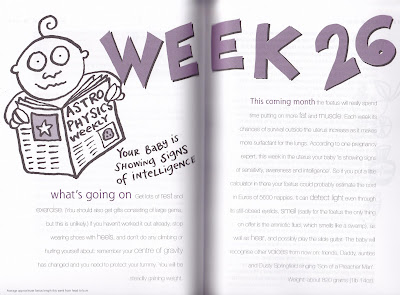 WEEK 26
ASTRO
PHYSICS
WEEKLY
YOUR BABY IS
SHOWING SIGNS
OF INTELLIGENCE
what's going on Get lots of rest and
exercise. (You should also get gifts consisting of large game,
but this is unlikely.) If you haven't worked it out already, stop
wearing shoes with heels, and don't do any climbing or
hurling yourself about: remember your centre of gravity
has changed and you need to protect your tummy. You will be
steadily gaining weight.
This coming month the foetus will really spend
time putting on more fat and muscle. Each week its
chances of survival outside the uterus increase as it makes
more surfactant for the lungs. According to one pregnancy
expert, this week in the uterus your baby is showing signs
of sensitivity, awareness and intelligence. So if you put a little
calculator in there your foetus could probably estimate the cost
in Euros of 5600 nappies. It can detect light even through
its still-closed eyelids, smell (sadly for foetus the only thing
on offer is the amniotic fluid, which smells like a sewer), as
well as hear, and possibly play the slide guitar. The baby will
recognise other voices from now on: friends, Daddy, Auntie
and Dusty Springfield singing 'Son of a Preacher Man'.
Weight: about 820 grams (1lb 14oz).